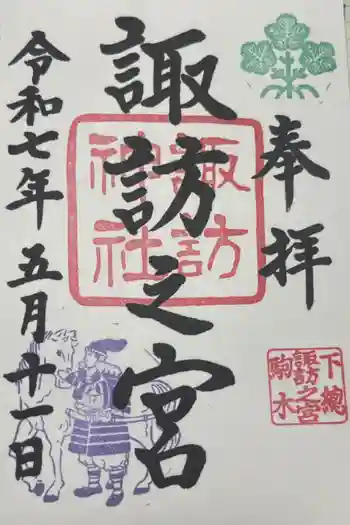 奉拝
諏訪之宮
諏訪
神社
令和七年五月十一日
下總
諏訪之宮
駒木